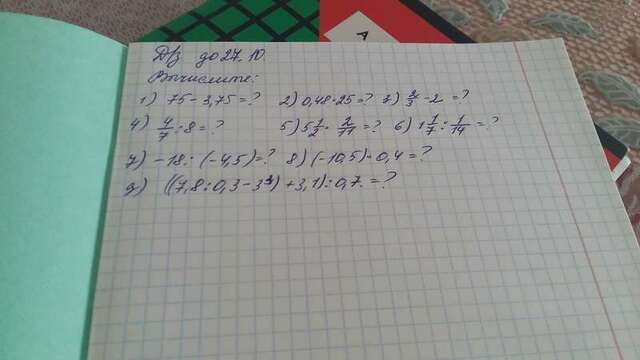 Д/з до 27.10.
Вычислите:
1) 75 - 3,75 = ? 2) 0,48 · 25 = ? 3) 2/3 - 2 = ?
4) 4/7 : 8 = ? 5) 5 1/2 · 2/11 = ? 6) 1 1/7 : 1/14 = ?
7) -18 : (-4,5) = ? 8) (-10,5) · 0,4 = ?
9) ((7,8 : 0,3 - 3³) + 3,1) : 0,7 = ?
А